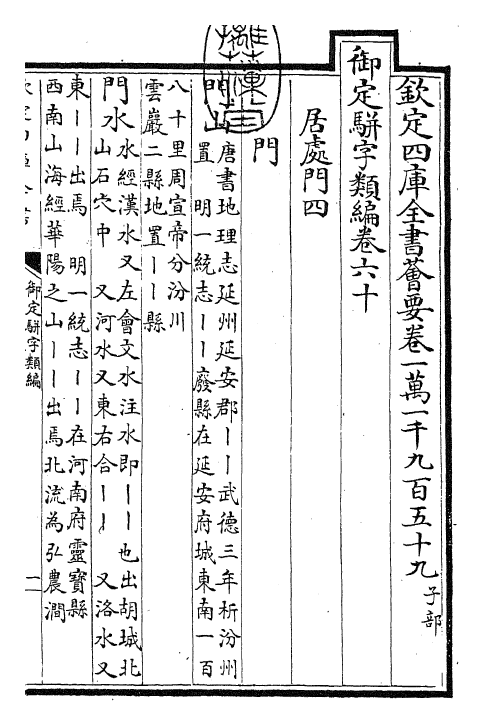 欽定四庫全書薈要卷一萬一千九百五十九 子部
御定駢字類編卷六十
居處門四
門
門山 唐書地理志延州延安郡丨丨武德三年析汾州
置 明一統志丨丨廢縣在延安府城東南一百
八十里周宣帝分汾川
雲巖二縣地置丨丨縣
門水 水經漢水又左會文水注水即丨丨也出胡城北
山石穴中 又河水又東右合丨丨 又洛水又
東丨丨出焉 明一統志丨丨在河南府靈寶縣
西南山海經華陽之山丨丨出焉北流為弘農澗
御定駢字類編
一